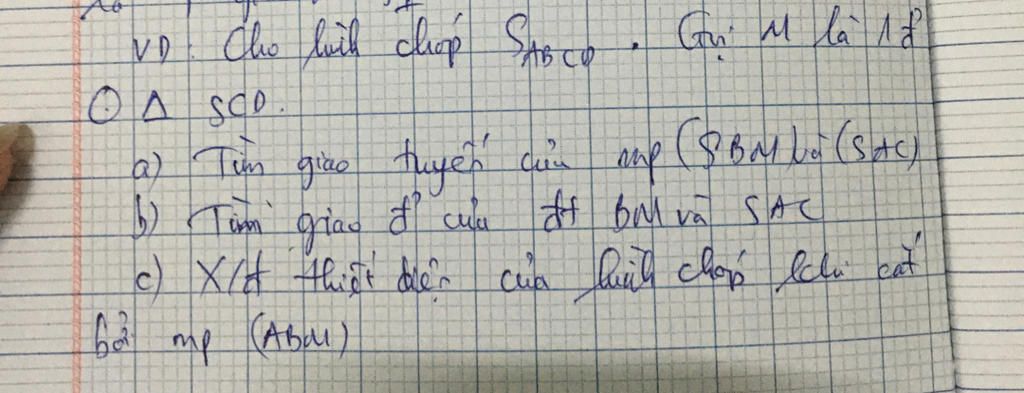 VD: Cho hình chóp SABCD. Gọi M là 1 đ'
⊙ Δ SCD.
a) Tìm giao tuyến của mp (SBM) và (SAC)
b) Tìm giao đ' của đt BM và SAC
c) X/đ thiết diện của hình chóp khi cắt
bởi mp (ABM)